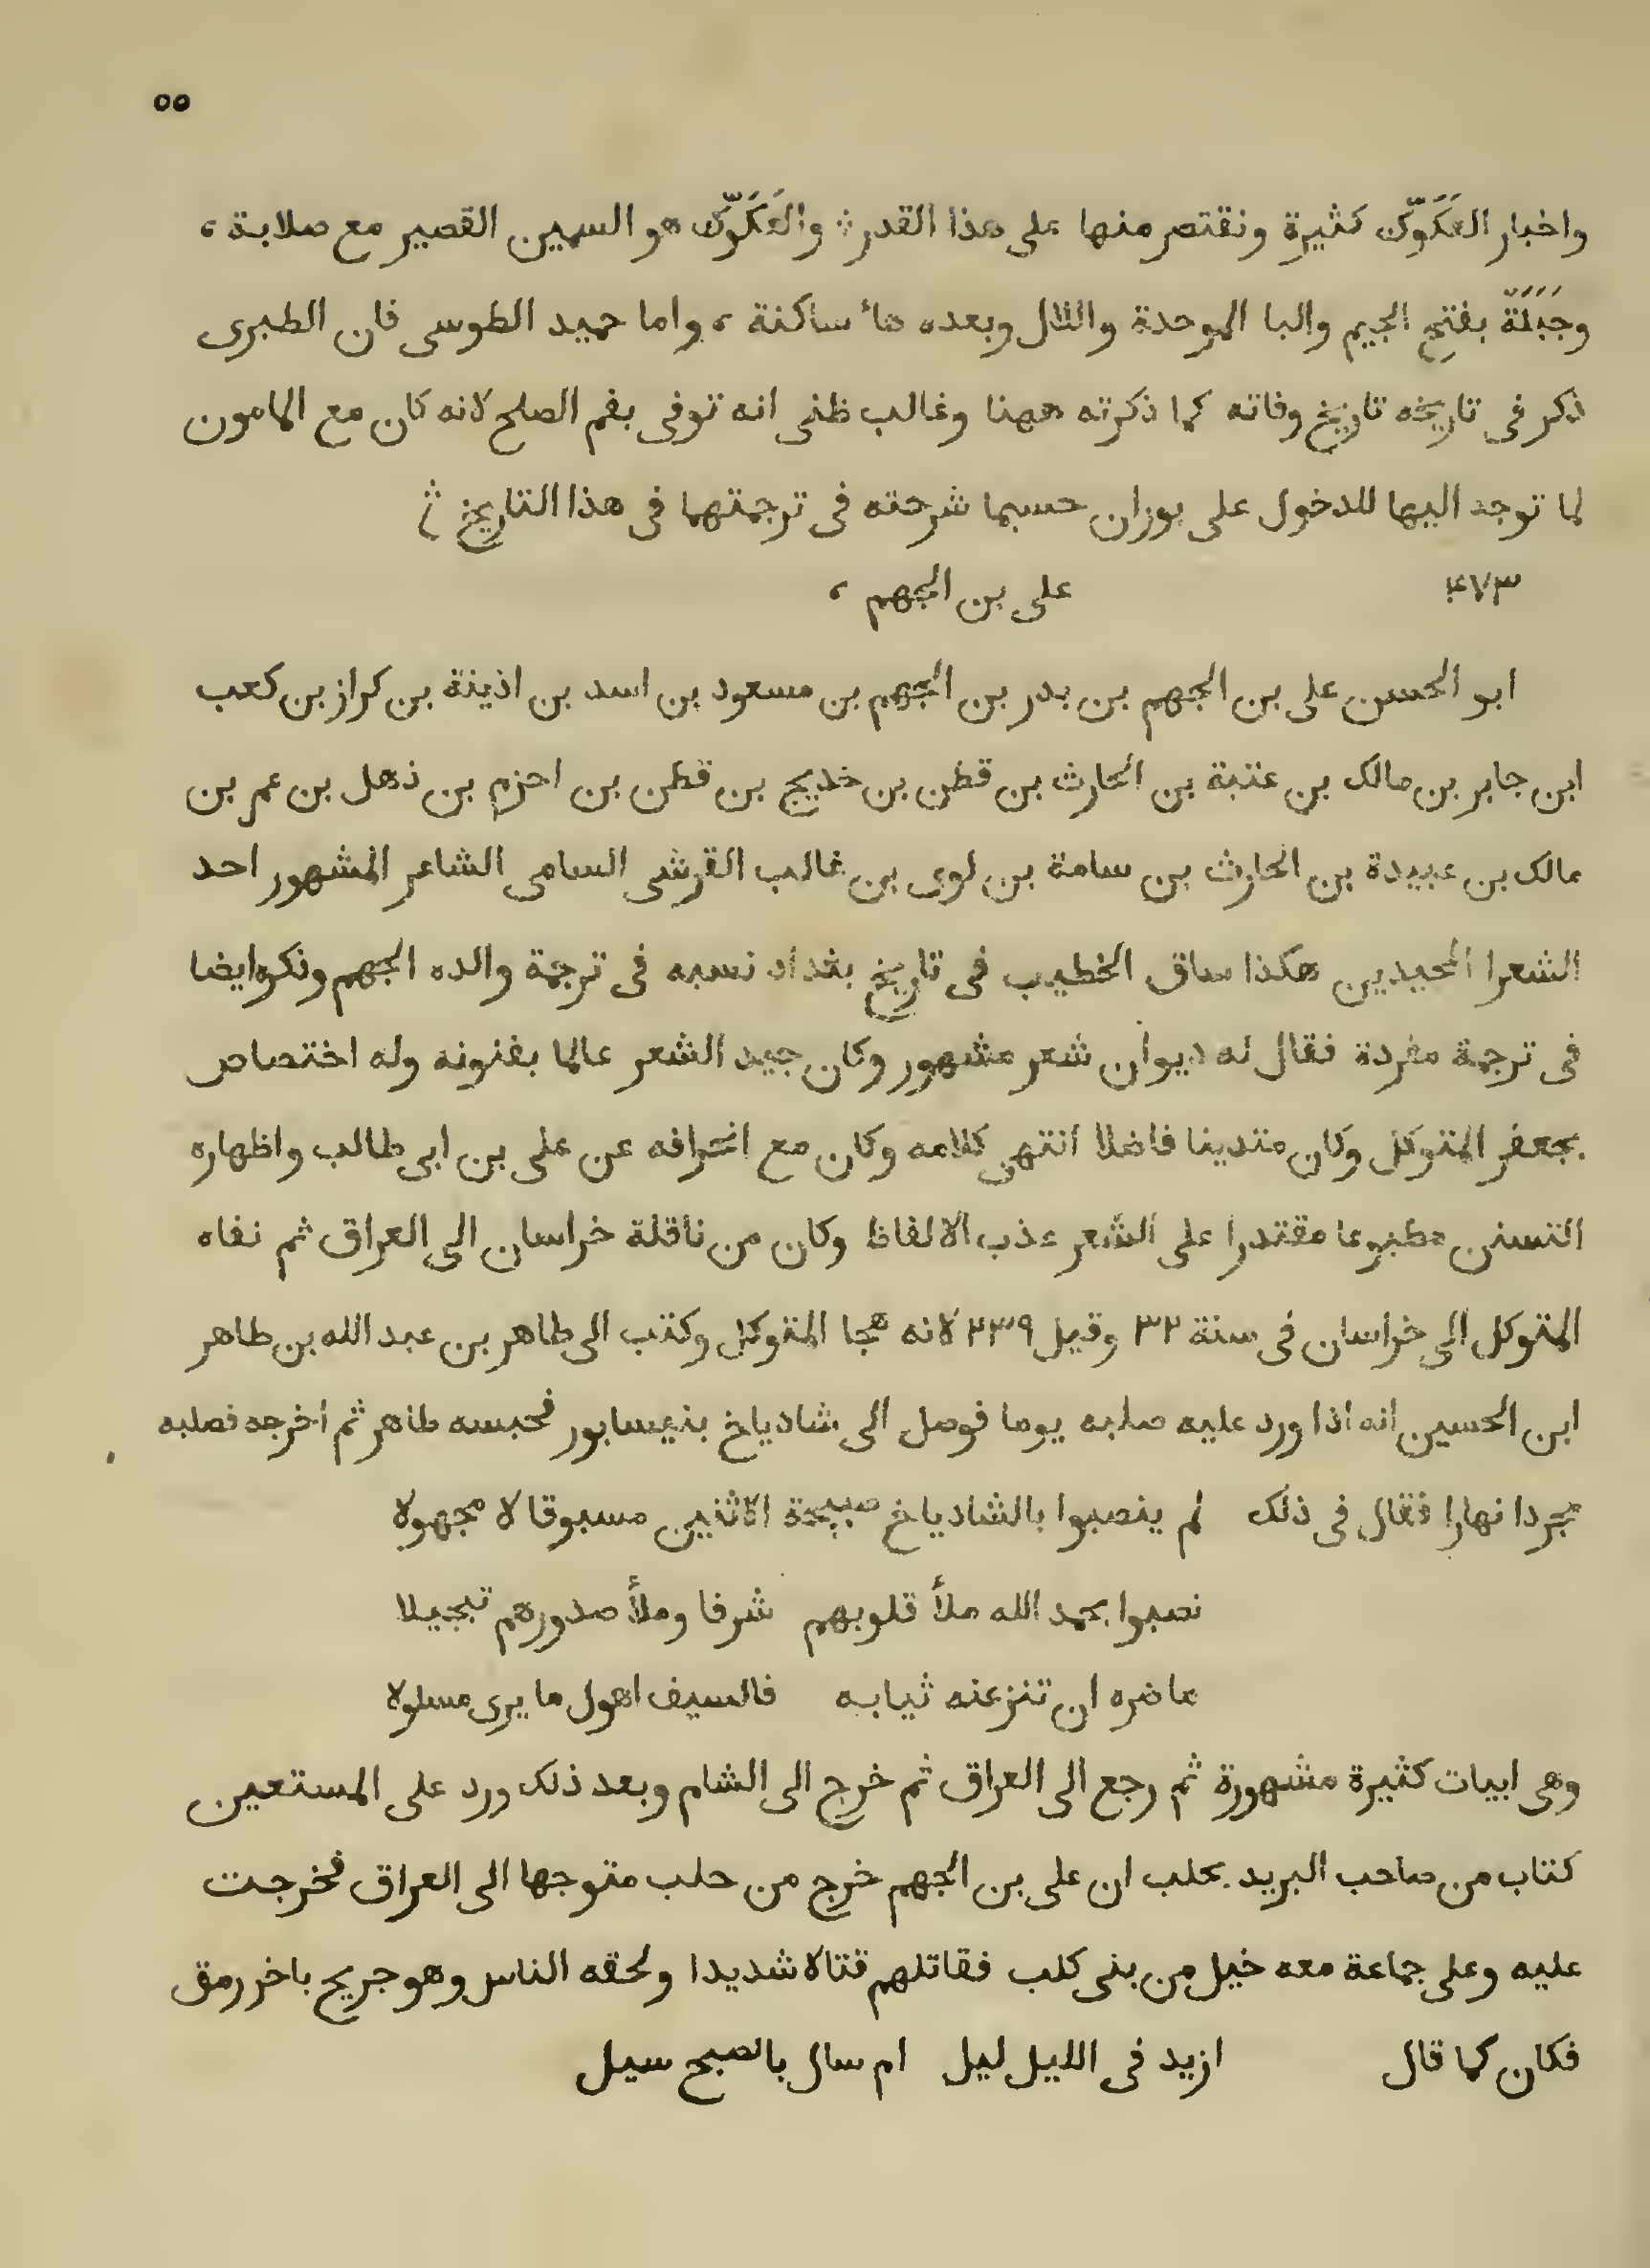 ٥٥
واخبار العَكَوَّك كثيرة ونقتصر منها على هذا القدر ⁖ والعَكَوَّك هو السمين القصير مع صلابة ،
وجَبَلَة بفتح الجيم والبا الموحدة واللال وبعده هاٴ ساكنة ، واما حميد الطوسى فان الطبرى
ذكر فى تاريخه تاريخ وفاته كما ذكرته ههنا وغالب ظنى انه توفى بفم الصلح لانه كان مع المامون
لما توجه اليها للدخول على بوران حسبما شرحته فى ترجمتهما فى هذا التاريخ ⁖
۴٧٣ على بن الجهم ،
ابو الحسن على بن الجهم بن بدر بن الجهم بن مسعود بن اسد بن اذينة بن كراز بن كعب
ابن جابر بن مالك بن عتبة بن الحارث بن قطن بن خديج بن قطن بن احزم بن ذهل بن عمر بن
مالك بن عبيدة بن الحارث بن سامة بن لوى بن غالب القرشى السامى الشاعر المشهور احد
الشعرا المجيدين هكذا ساق الخطيب فى تاريخ بغداد نسبه فى ترجمة والده الجهم وذكره ايضا
فى ترجمة مفردة فقال له ديوان شعر مشهور وكان جيد الشعر عالما بفنونه وله اختصاص
بجعفر المتوكل وكان متدينا فاضلا انتهى كلامه وكان مع انحرافه عن على بن ابى طالب واظهاره
التسنن مطبوعا مقتدرا على الشعر عذب الالفاظ وكان من ناقلة خراسان الى العراق ثم نفاه
المتوكل الى خراسان فى سنة ٣٢ وقيل ٢٣٩ لانه هجا المتوكل وكتب الى طاهر بن عبد الله بن طاهر
ابن الحسين انه اذا ورد عليه صلبه يوما فوصل الى شاذياخ بنيسابور فحبسه طاهر ثم اخرجه فصلبه
مجردا نهارا فقال فى ذلك لم ينصبوا بالشاذياخ صبيحة الاثنين مسبوقا لا مجهولا
نصبوا بحمد الله ملأ قلوبهم شرفا وملأ صدورهم تبجيلا
ما ضره ان تنز عنه ثيابه فالسيف اهول ما يرى مسلولا
وهى ابيات كثيرة مشهورة ثم رجع الى العراق ثم خرج الى الشام وبعد ذلك ورد على المستعين
كتاب من صاحب البريد بحلب ان على بن الجهم خرج من حلب متوجها الى العراق فخرجت
عليه وعلى جماعة معه خيل من بنى كلب فقاتلهم قتالا شديدا ولحقه الناس وهو جريح باخر رمق
فكان كما قال ازيد فى الليل ليل ام سال بالصبح سيل